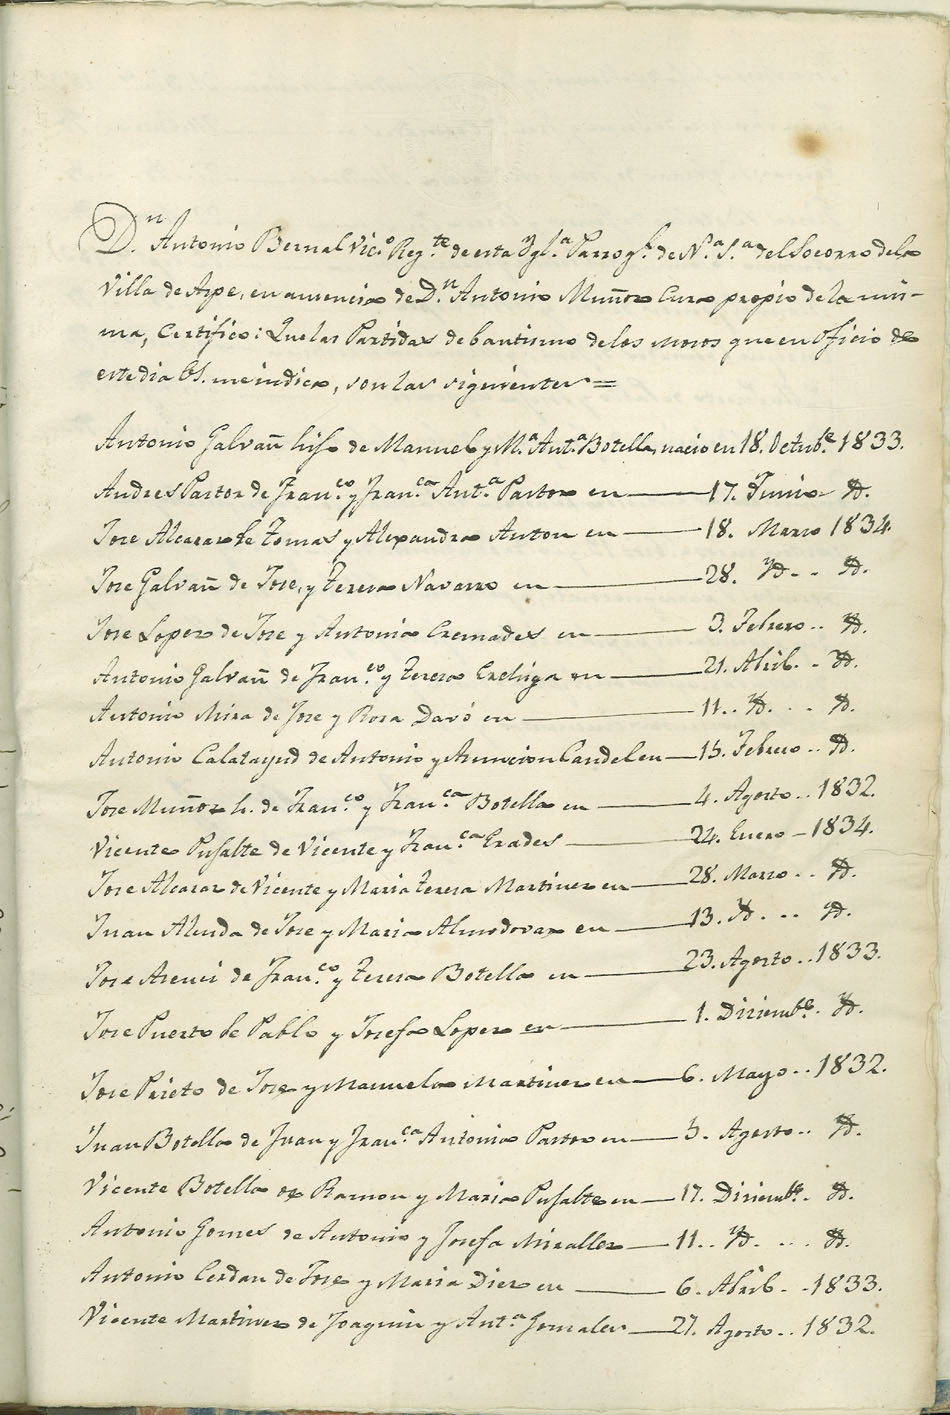 D.n Antonio Bernal Vic.o Reg.te de esta Ygl.a Parroq.l de N.a S.a del Socorro dela
Villa de Aspe, en ausencia de D.n Antonio Muñoz Cura propio de la mis-
ma, Certifico: Que las Partidas de bautismo de los mozos que en oficio de
este dia me indica, son las siguientes =
Antonio Galvañ hijo de Manuel y M.a Ant.a Botella, nacio en 18. Octub.e 1833.
Andres Pastor de Fran.co y Fran.ca Ant.a Pastor en — 17. Junio Yd.
Jose Alcaraz de Tomas y Alexandra Anton en — 18. Marzo 1834
Jose Galvañ de Jose, y Teresa Navarro en — 28. Yd. . . Yd.
Jose Lopez de Jose y Antonia Cremades en — 3. Febrero . . Yd.
Antonio Galvañ de Fran.co y Teresa en — 21. Abril . . Yd.
Antonio Mira de Jose y Rosa Davó en — 11. . Yd. . . . Yd.
Antonio Calatayud de Antonio y Asuncion Candel en — 15. Febrero . . Yd.
Jose Muñoz h. de Fran.co y Fran.ca Botella en — 4. Agosto . . 1832.
Vicente Pujalte de Vicente y Fran.ca Erades — 24. Enero — 1834.
Jose Alcaraz de Vicente y Maria Teresa Martinez en — 28. Marzo . . Yd.
Juan Almodovar de Jose y Maria Almodovar en — 13. Yd. . . . Yd.
Jose Asenci de Fran.co y Teresa Botella en — 23. Agosto . . 1833.
Jose Puerto de Pablo y Josefa Lopez en — 1. Diziemb.e . Yd.
Jose Prieto de Jose y Manuela Martinez en — 6. Mayo . . 1832.
Juan Botella de Juan y Fran.ca Antonia Pastor en — 5. Agosto . . Yd.
Vicente Botella de Ramon y Maria Pujalte en — 17. Diziemb.e . Yd.
Antonio Gomes de Antonio y Josefa Miralles — 11. . Yd. . . . Yd.
Antonio Cerdan de Jose y Maria Diez en — 6. Abril . . 1833.
Vicente Martinez de Joaquin y Ant.a Gonzalez — 27. Agosto . . 1832.